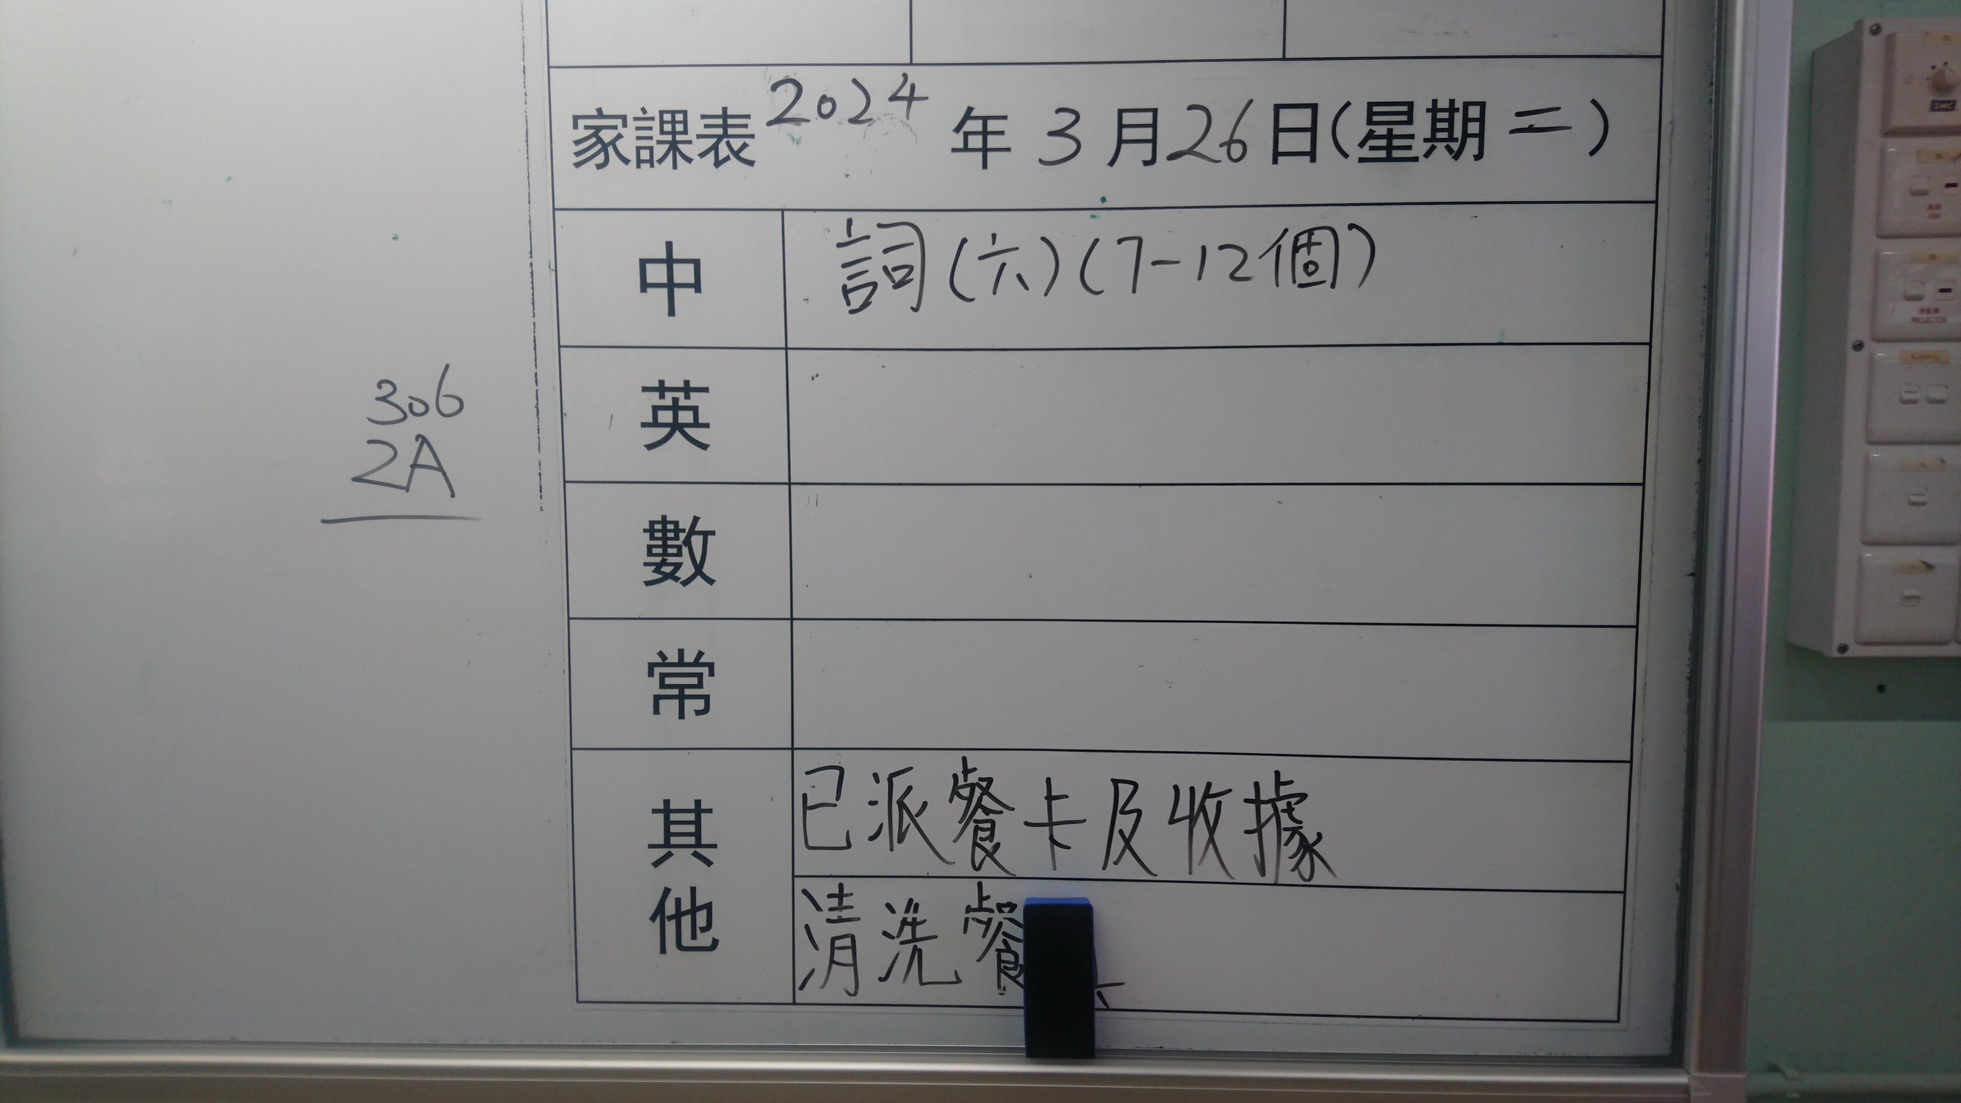 家課表 2024 年 3 月 26 日(星期二)
中 詞(六)(7-12個)
英
數
常
其他 已派餐卡及收據
清洗餐
306
2A